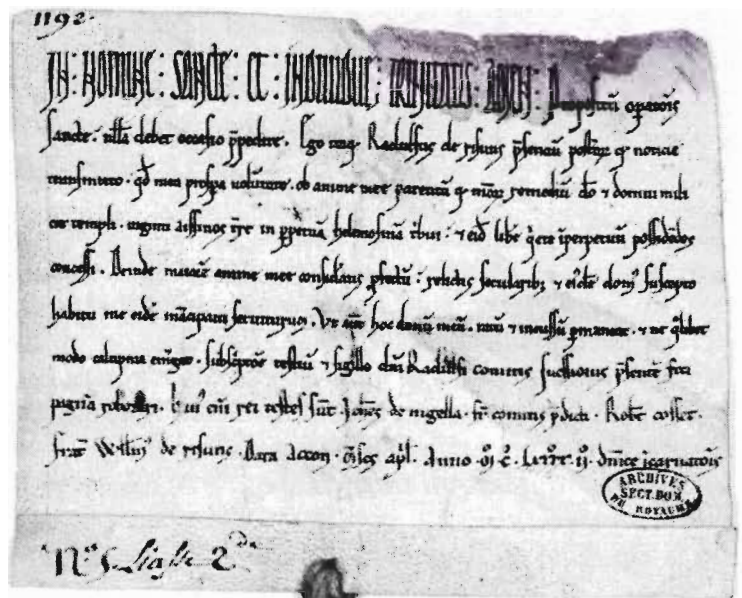 1192.
IN : NOMINE : SANCTE : ET : INDIVIDUE : TRINITATIS : AMEN : Propositū opatōis
sancte . nlla debet occasio p̄pedire . Ego itaq; Radulfus de p̄sentiū postisq; noticie
transmitto . qd̄ mea ppa volūtate . ob anime mee parentū q; meoꝝ remediū dō ⁊ domui mili
cie templi . viginti in ppetuā helemosinā tbui : ⁊ eisd̄ libe q̄ete ī perpetuū possidēdos
concessi . Deinde anime mee consid̄ans pfectū : relictis secularibꝫ ⁊ eiusdē domꝰ suscepto
habitu me eidē mācipaui seruiturum . Vt aūt hoc donū meū . ratū ⁊ incussū pmaneat . ⁊ ne qͥlibet
modo calūpnia emgat . subscptōe testiū ⁊ sigillo dn̄i Radulfi comitis suessionis p̄sentē feci
paginā roborari . huiꝰ eni rei testes sūt . Johes de nigella . fr̄ comitis pdicti . Robt cosset .
frat̄ Willmꝰ de . Data accon . mēse apl . Anno . Mº . Cº . LXXXX . IIº . dn̄ice īcarnatōis
ARCHIVES
SECT. DOM.
DU ROYAUME
Nº 5. Liasse 2de